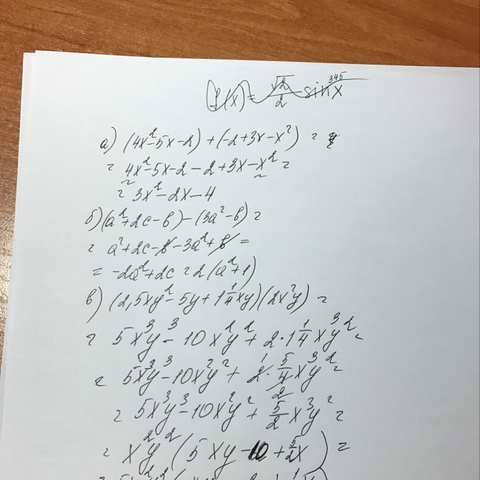 f(x) = √2/2 sin x³⁴⁵
а) (4x²-5x-2)+(-2+3x-x²) =
= 4x²-5x-2-2+3x-x² =
= 3x²-2x-4
б) (a²+2c-b)-(3a²-b) =
= a²+2c-b-3a²+b =
= -2a²+2c = 2(a²+1)
в) (2,5xy²-5y+1 1/4 xy)(2x²y) =
= 5x³y³-10x²y²+2·1 1/4 x³y² =
= 5x³y³-10x²y²+2·5/4 x³y² =
= 5x³y³-10x²y²+5/2 x³y² =
= x²y²(5xy-10+5/2x) =